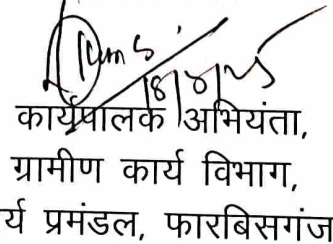 18/8/25
कार्यपालक अभियंता,
ग्रामीण कार्य विभाग,
र्य प्रमंडल, फारबिसगंज